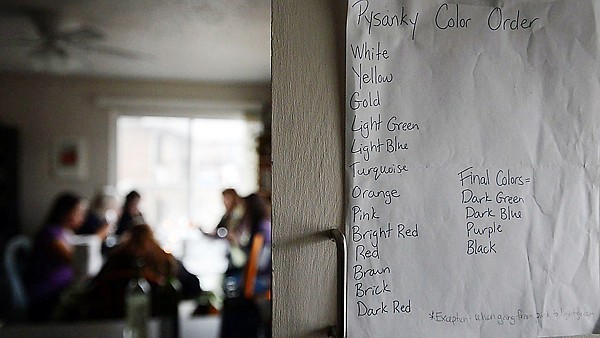 Pysanky Color Order
White
Yellow
Gold
Light Green
Light Blue
Turquoise
Orange
Pink
Bright Red
Red
Brown
Brick
Dark Red
Final Colors=
Dark Green
Dark Blue
Purple
Black
*Exception: when going from to